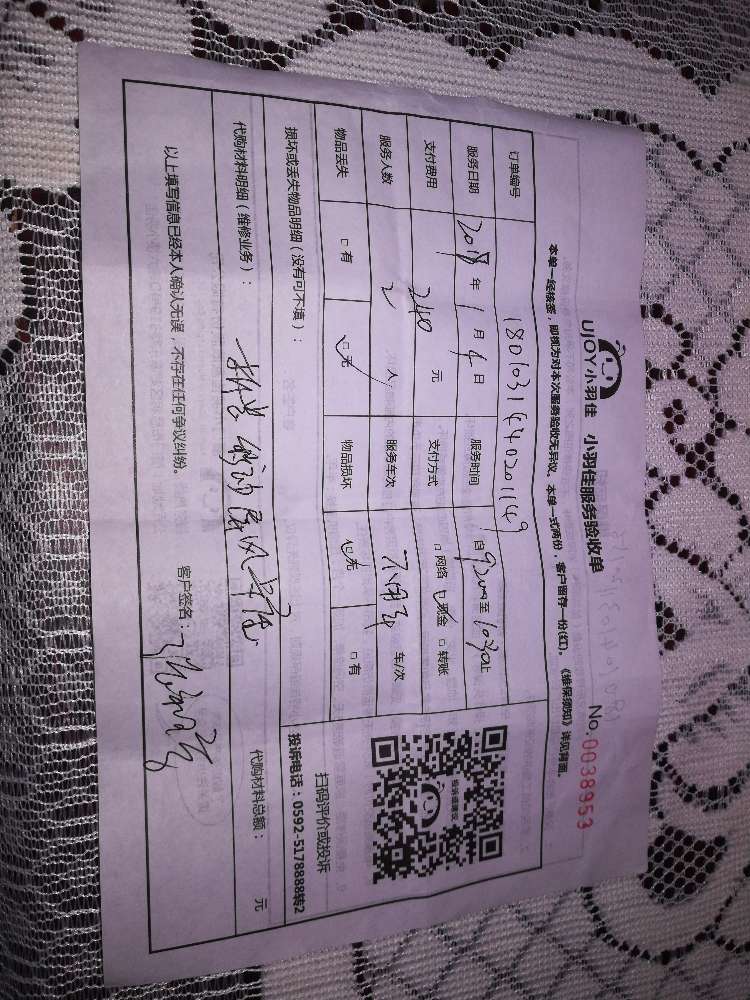 UJOY小羽佳 小羽佳服务验收单
No.0038953
本单一经核签，即视为对本次服务验收无异议。本单一式两份，客户留存一份(红)。《维保须知》详见背面。
订单编号
服务日期 2018年1月4日 服务时间 自9:00至10:30止
支付费用 240元 支付方式 □网络 ☑现金 □转账
服务人数 2人 服务车次 不用车 车/次
物品丢失 □有 ☑无 物品损坏 ☑无 □有
扫码评价或投诉
投诉电话：0592-5178888转2
损坏或丢失物品明细（没有可不填）：
代购材料明细（维修业务）： 代购材料总额： 元
以上填写信息已经本人确认无误，不存在任何争议纠纷。 客户签名：